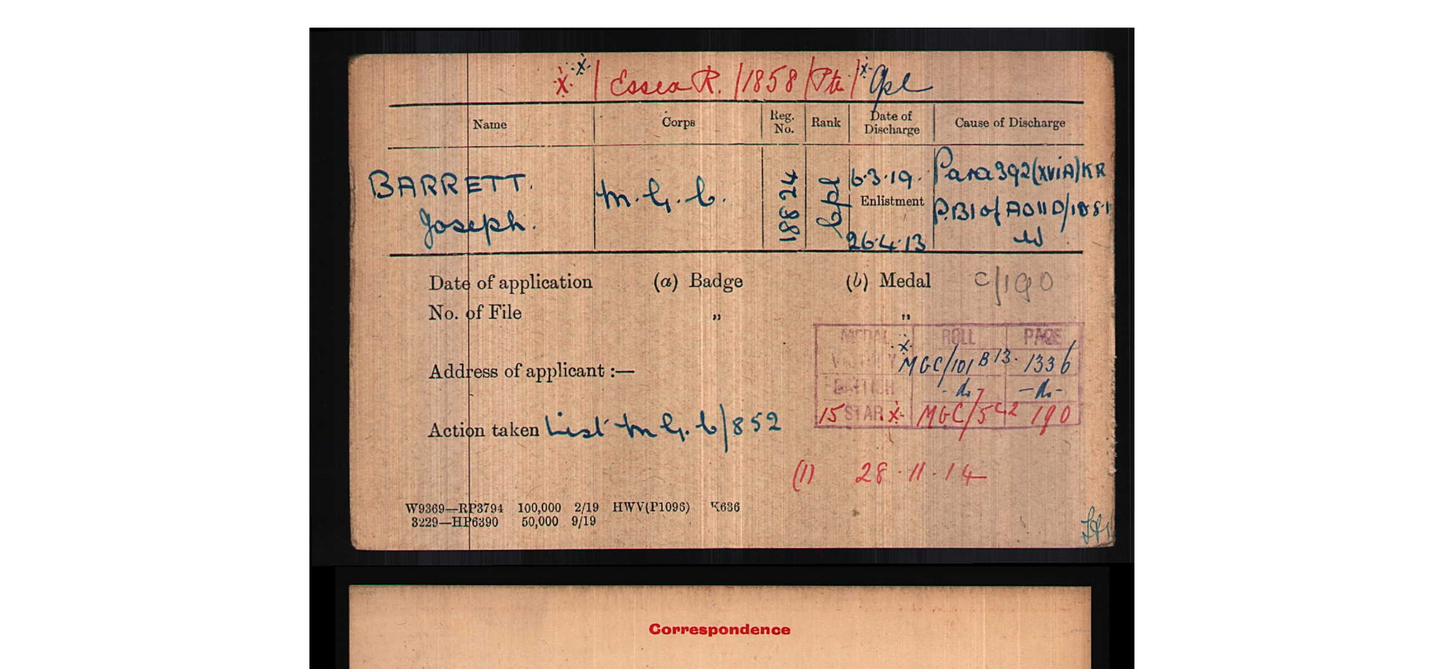 x x / Essex R. / 1858 / Pte / x Cpl
Name Corps Reg. No. Rank Date of Discharge Cause of Discharge
BARRETT. Joseph. M.G.C. 18824 Cpl 6.3.19. Para 392 (XVIA) KR
Enlistment P.B1 of AO 11 D/1881
26.4.13
Date of application (a) Badge (b) Medal C/190
No. of File " "
MEDAL ROLL PAGE
VICTORY x MGC/101 B13. 1336
Address of applicant :—
BRITISH -do- -do-
15 STAR x MGC/5C2 190
Action taken List M.G.C/852
(1) 28.11.14
W9369—RP3794 100,000 2/19 HWV(P1096) K636
3229—HP6390 50,000 9/19
Correspondence